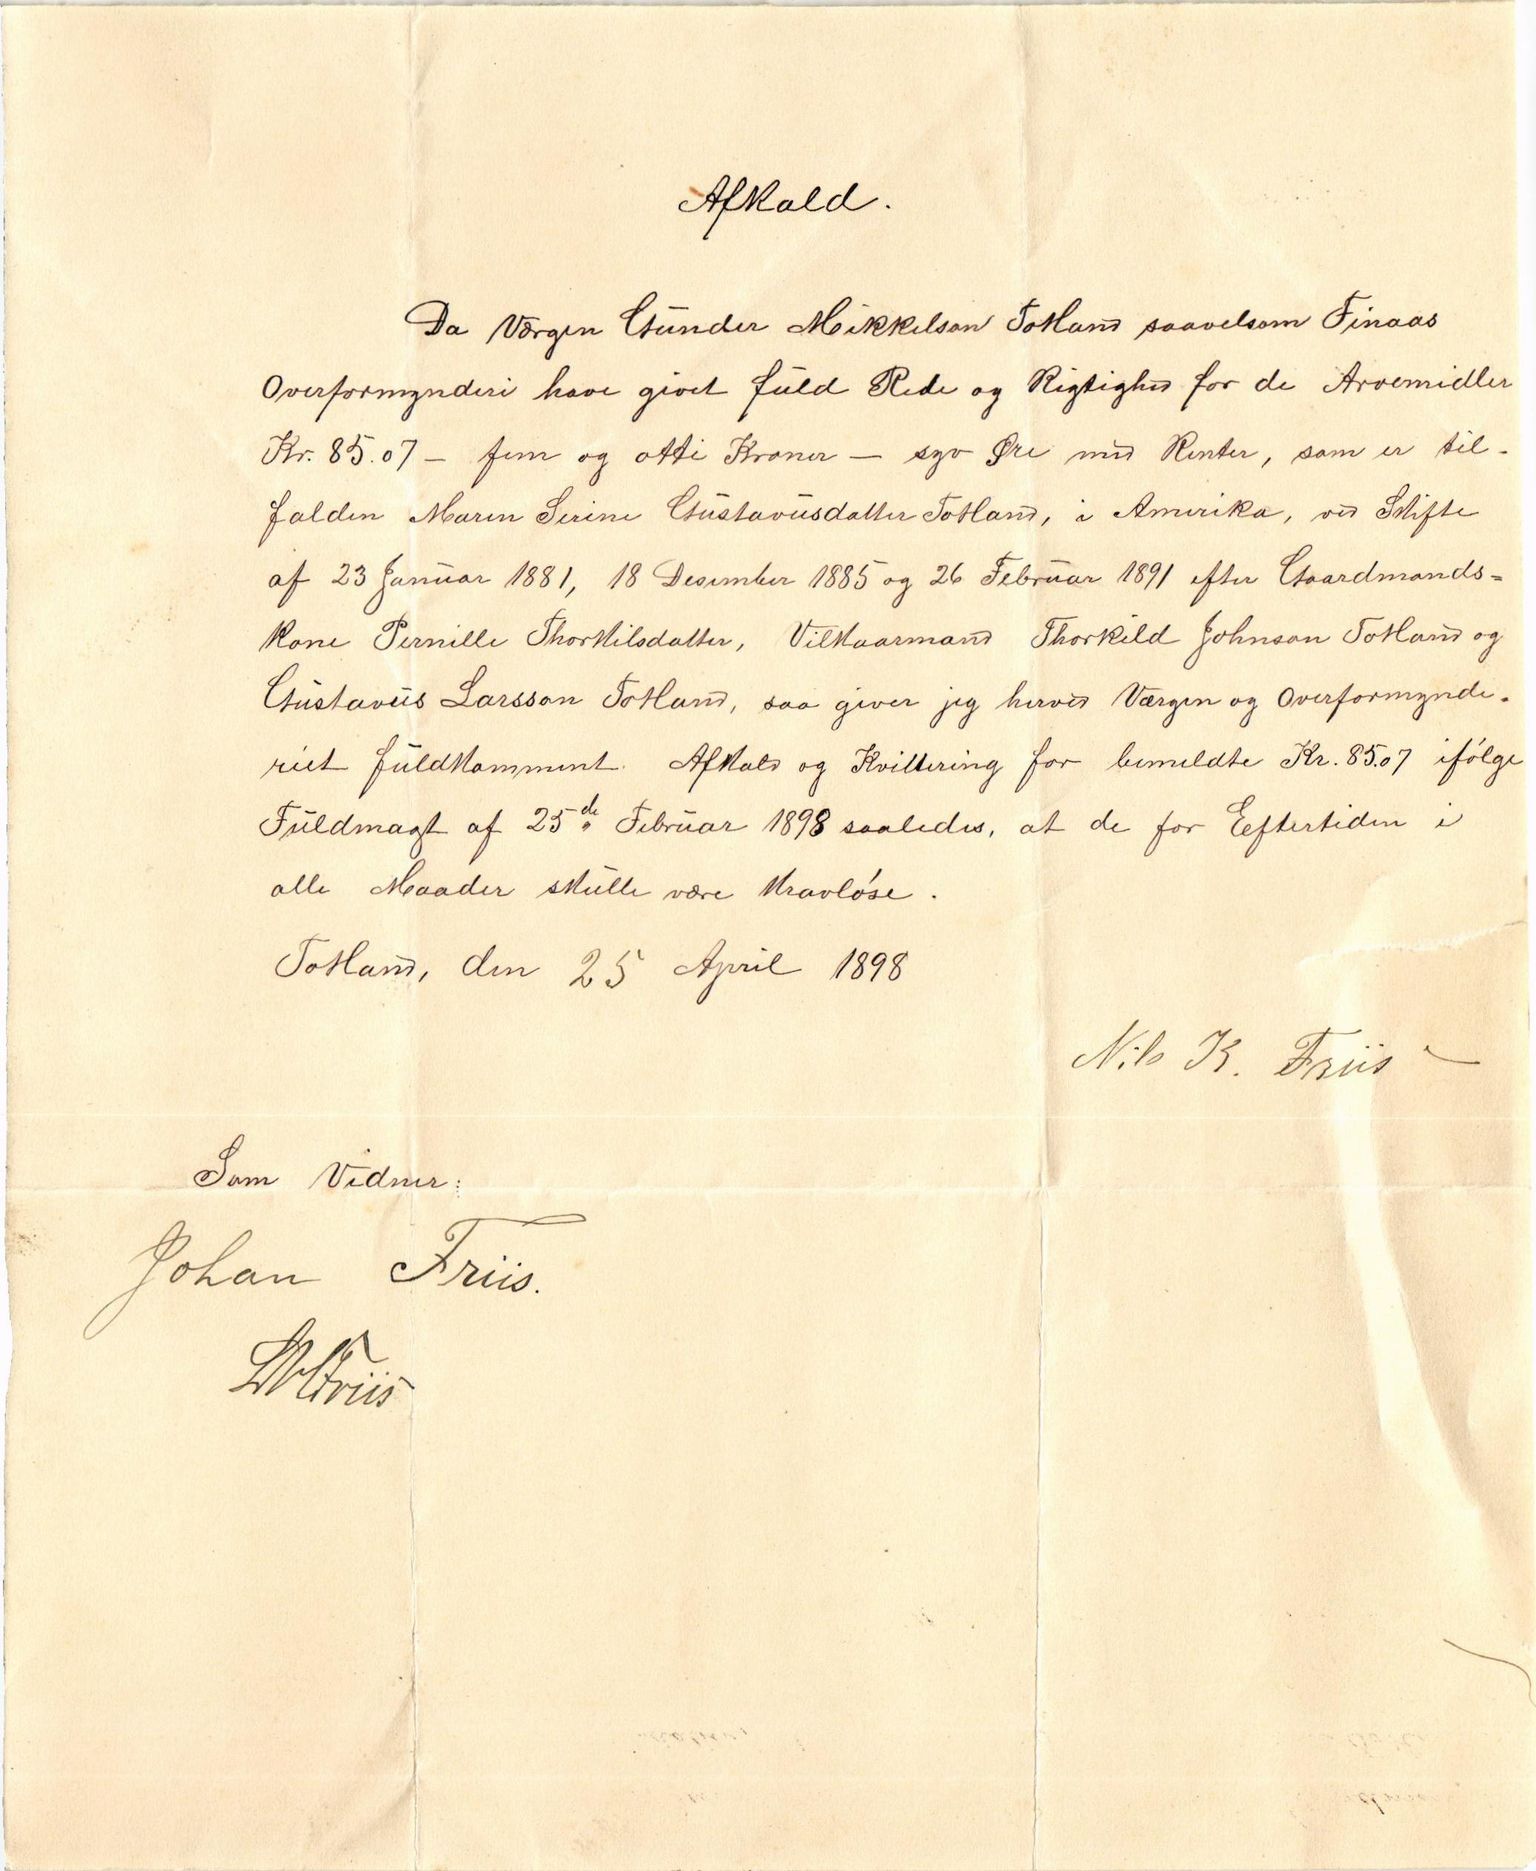 Afkald.
Da Værgen Gunder Mikkelson Totland saavelsom Finaas
Overformynderi have givet fuld Rede og Rigtighed for de Arvemidler
Kr. 85.07 – fem og otti Kroner – syv Øre med Renter, som er til-
falden Maren Serine Gustavusdatter Totland, i Amerika, ved Skifte
af 23 Januar 1881, 18 Desember 1885 og 26 Februar 1891 efter Gaardmands=
kone Pernille Thorkilsdatter, Vilkaarmand Thorkild Johnson Totland og
Gustavus Larsson Totland, saa giver jeg herved Værgen og Overformynde-
riet fuldkomment Afkald og Kvittering for bemeldte Kr. 85.07 ifólge
Fuldmagt af 25de Februar 1898 saaledes, at de for Eftertiden i
alle Maader skulle være kravlóse.
Totland, den 25 April 1898
Nils K. Friis
Som Vidner:
Johan Friis.
Friis